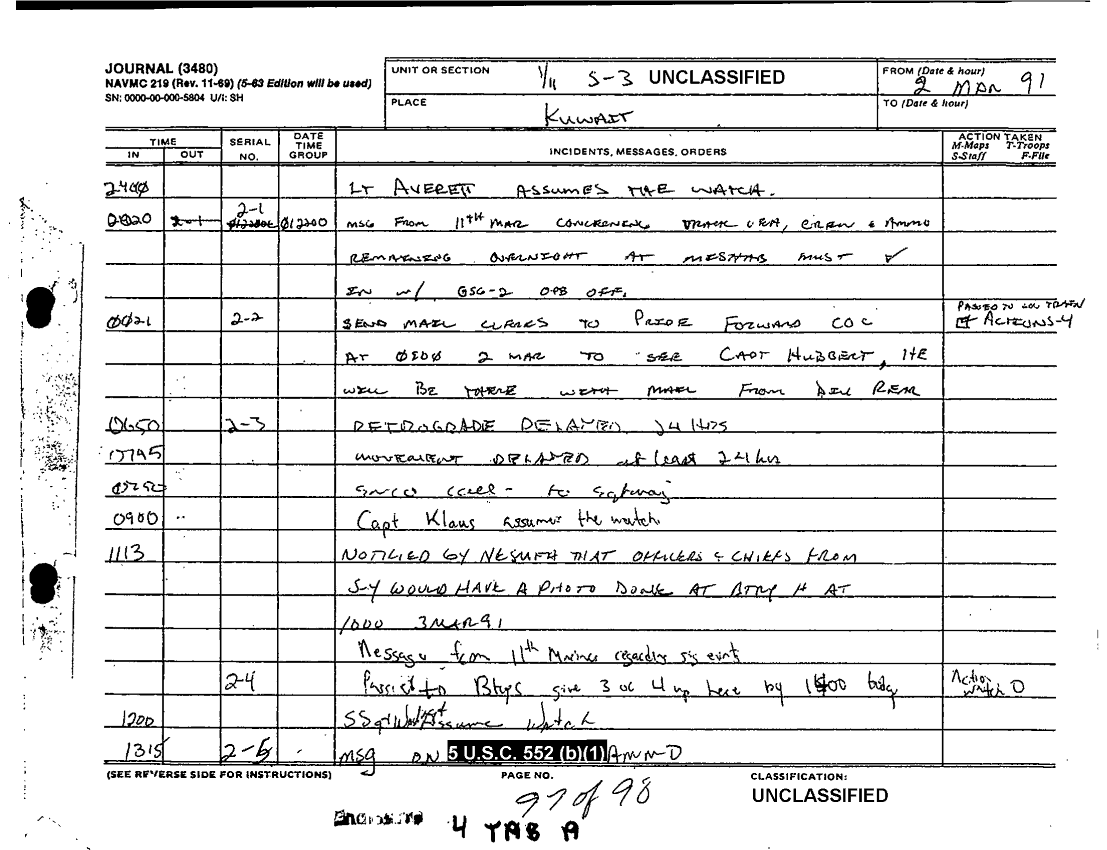 JOURNAL (3480)
NAVMC 219 (Rev. 11-69) (5-63 Edition will be used)
SN: 0000-00-000-5804 U/I: SH
UNIT OR SECTION 1/11 S-3 UNCLASSIFIED
FROM (Date & hour) 2 MAR 91
PLACE KUWAIT
TO (Date & hour)
TIME
IN OUT
SERIAL NO.
DATE TIME GROUP
INCIDENTS, MESSAGES, ORDERS
ACTION TAKEN
M-Maps T-Troops
S-Staff F-File
2400 LT AVERETT ASSUMES THE WATCH.
0020 2-1 012200 MSG FROM 11TH MAR CONCERNING TRACK VEH, CREW & AMMO
REMAINING OVERNIGHT AT MUST ✓
IN W/ OFF.
0021 2-2 SEND MAIL CLERKS TO PRIDE FORWARD COC
PASSED TO LOG TRAIN
ACTION S-4
AT 0800 2 MAR TO SEE CAPT HUBBERT, HE
WILL BE THERE WITH MAIL FROM DIV REAR
0650 2-3 RETROGRADE DELAYED 24 HRS
MOVEMENT DELAYED at least 24 hrs
to
0900 Capt Klaus assumes the watch
1113 NOTIFIED BY NESMITH THAT OFFICERS & CHIEFS FROM
S-4 WOULD HAVE A PHOTO DONE AT BTRY H AT
1000 3 MAR 91
Message from 11th Marines regarding sig events
2-4 Passed to Btrys give 3 or 4 up here by today
Action Watch O
1200 SSgt Assume Watch
1315 2-5 msg ON 5 U.S.C. 552 (b)(1) AMMO
(SEE REVERSE SIDE FOR INSTRUCTIONS)
PAGE NO.
97 of 98
CLASSIFICATION:
UNCLASSIFIED
Enclosure 4 TAB A